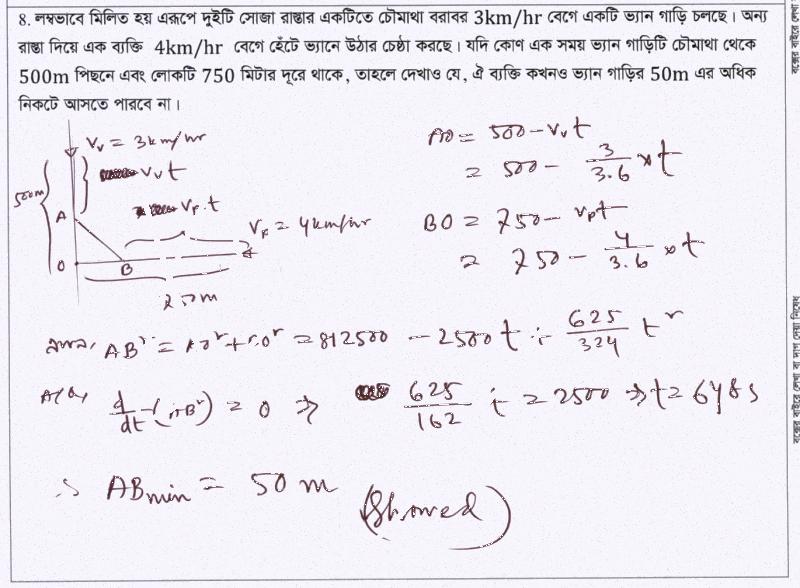 8. লম্বভাবে মিলিত হয় এরূপে দুইটি সোজা রাস্তার একটিতে চৌমাথা বরাবর 3km/hr বেগে একটি ভ্যান গাড়ি চলছে। অন্য
রাস্তা দিয়ে এক ব্যক্তি 4km/hr বেগে হেঁটে ভ্যানে উঠার চেষ্টা করছে। যদি কোণ এক সময় ভ্যান গাড়িটি চৌমাথা থেকে
500m পিছনে এবং লোকটি 750 মিটার দূরে থাকে, তাহলে দেখাও যে, ঐ ব্যক্তি কখনও ভ্যান গাড়ির 50m এর অধিক
নিকটে আসতে পারবে না।
V_v = 3km/hr
V_v t
500m
V_p.t
A
V_p = 4km/hr
O
B
750m
AO = 500 - V_v t
= 500 - 3/3.6 × t
BO = 750 - V_p t
= 750 - 4/3.6 × t
AB² = AO² + BO² = 812500 - 2500t + 625/324 t²
d/dt (AB²) = 0 ⇒ 625/162 t = 2500 ⇒ t = 648s
∴ AB_min = 50 m (Showed)